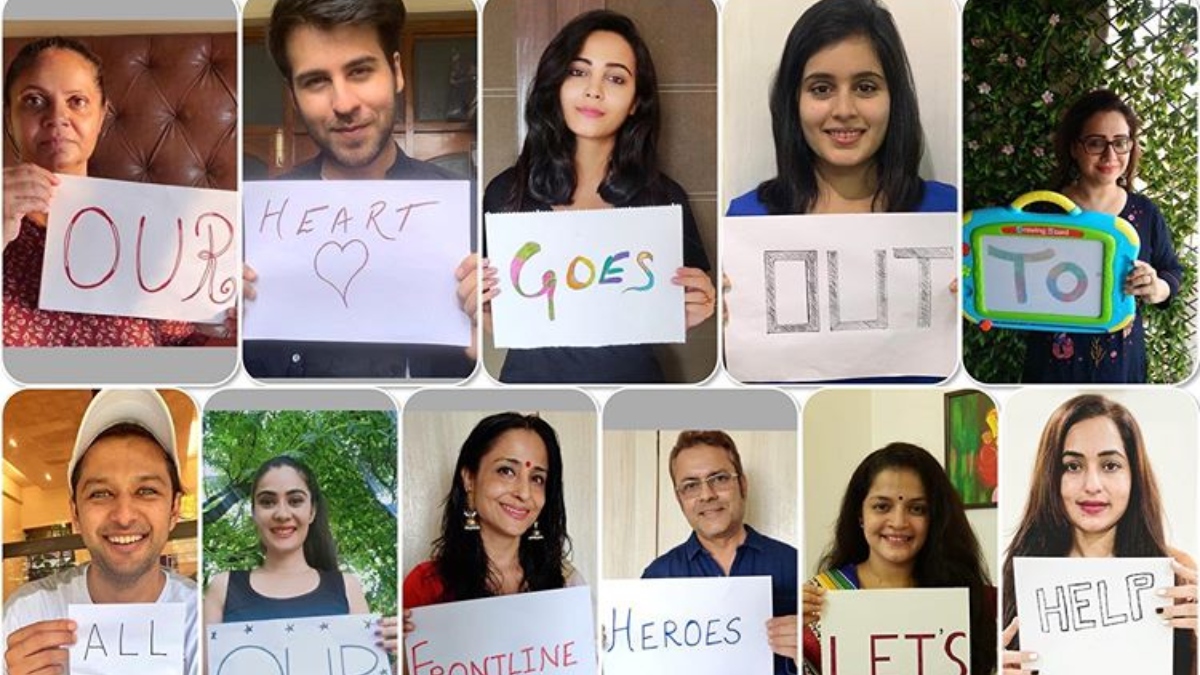 OUR
HEART
GOES
OUT
Drawing Board
TO
ALL
OUR
FRONTLINE
HEROES
LET'S
HELP